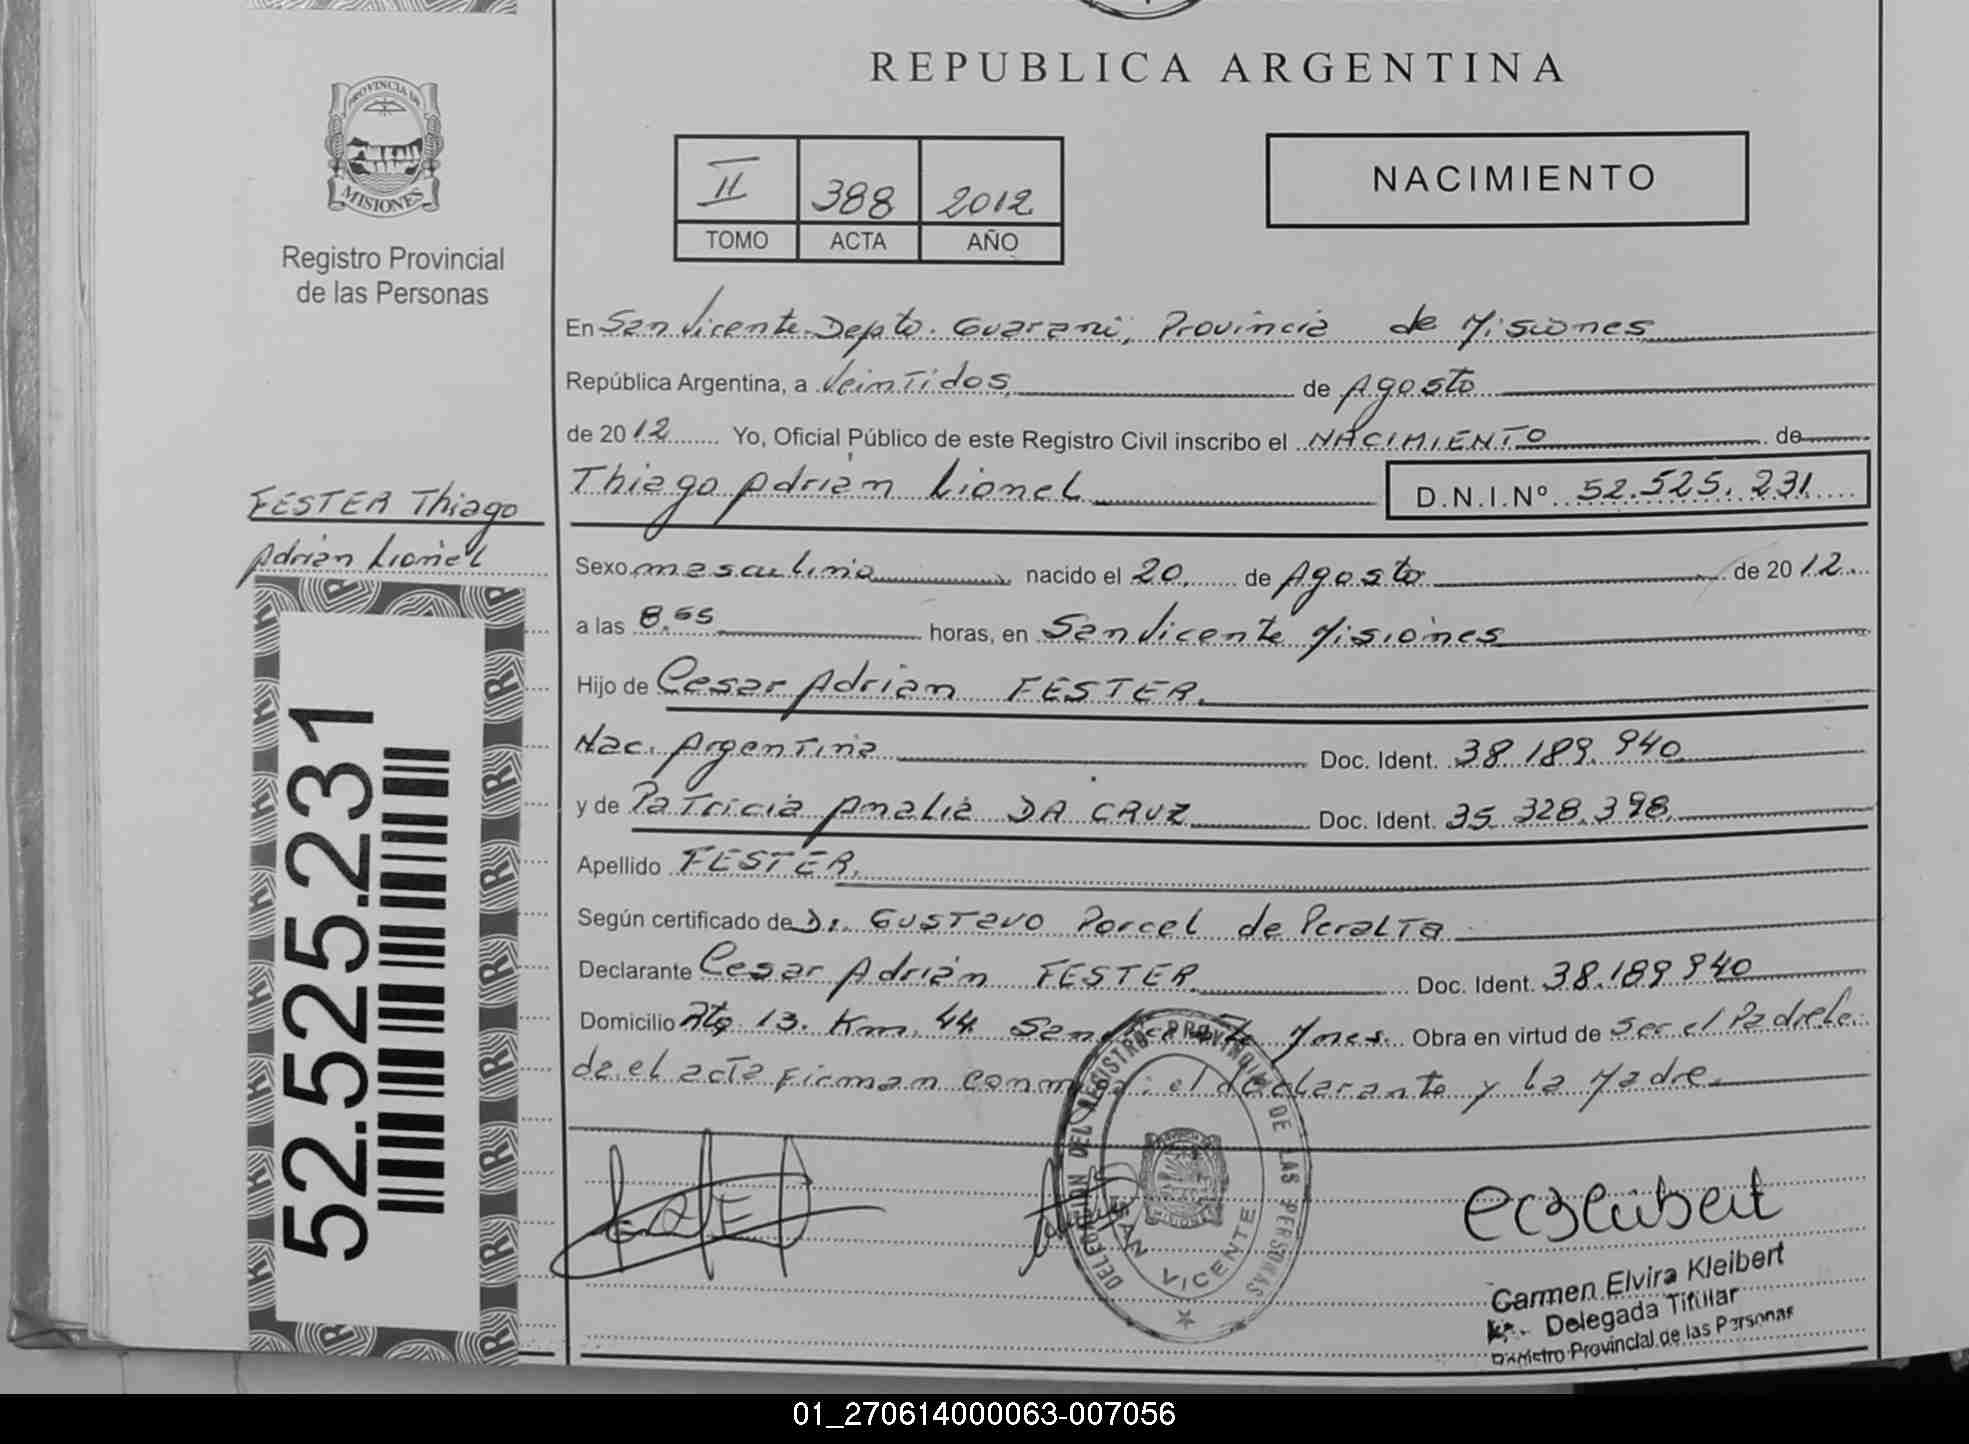 REPUBLICA ARGENTINA
PROVINCIA DE
MISIONES
Registro Provincial
de las Personas
II 388 2012
TOMO ACTA AÑO
NACIMIENTO
En San Vicente Depto. Guarani, Provincia de Misiones
República Argentina, a Veintidos de Agosto
de 2012 Yo, Oficial Público de este Registro Civil inscribo el NACIMIENTO de
Thiago Adrián Lionel D.N.I.Nº 52.525.231
FESTER Thiago
Adrián Lionel
Sexo masculino nacido el 20 de Agosto de 2012
a las horas, en San Vicente Misiones
Hijo de Cesar Adrian FESTER.
Nac. Argentina Doc. Ident. 38.189.940
y de Patricia Amalia DA CRUZ Doc. Ident. 35.328.398
Apellido FESTER.
Según certificado de Dr. Gustavo Porcel de Peralta
Declarante Cesar Adrián FESTER Doc. Ident. 38.189.940
Domicilio Rta 13. Km. 44. San Vicente Mnes. Obra en virtud de ser el Padre Lei
da el acta firman conmigo: el declarante y la Madre.
52.525.231
DELEGACION DEL REGISTRO PROVINCIAL DE LAS PERSONAS
SAN VICENTE
Carmen Elvira Kleibert
Delegada Titular
Registro Provincial de las Personas
01_270614000063-007056